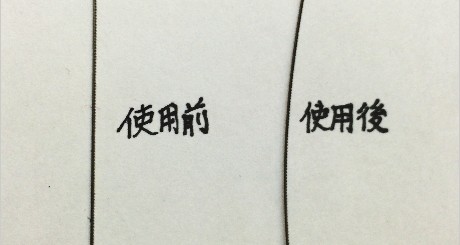 使用前
使用後